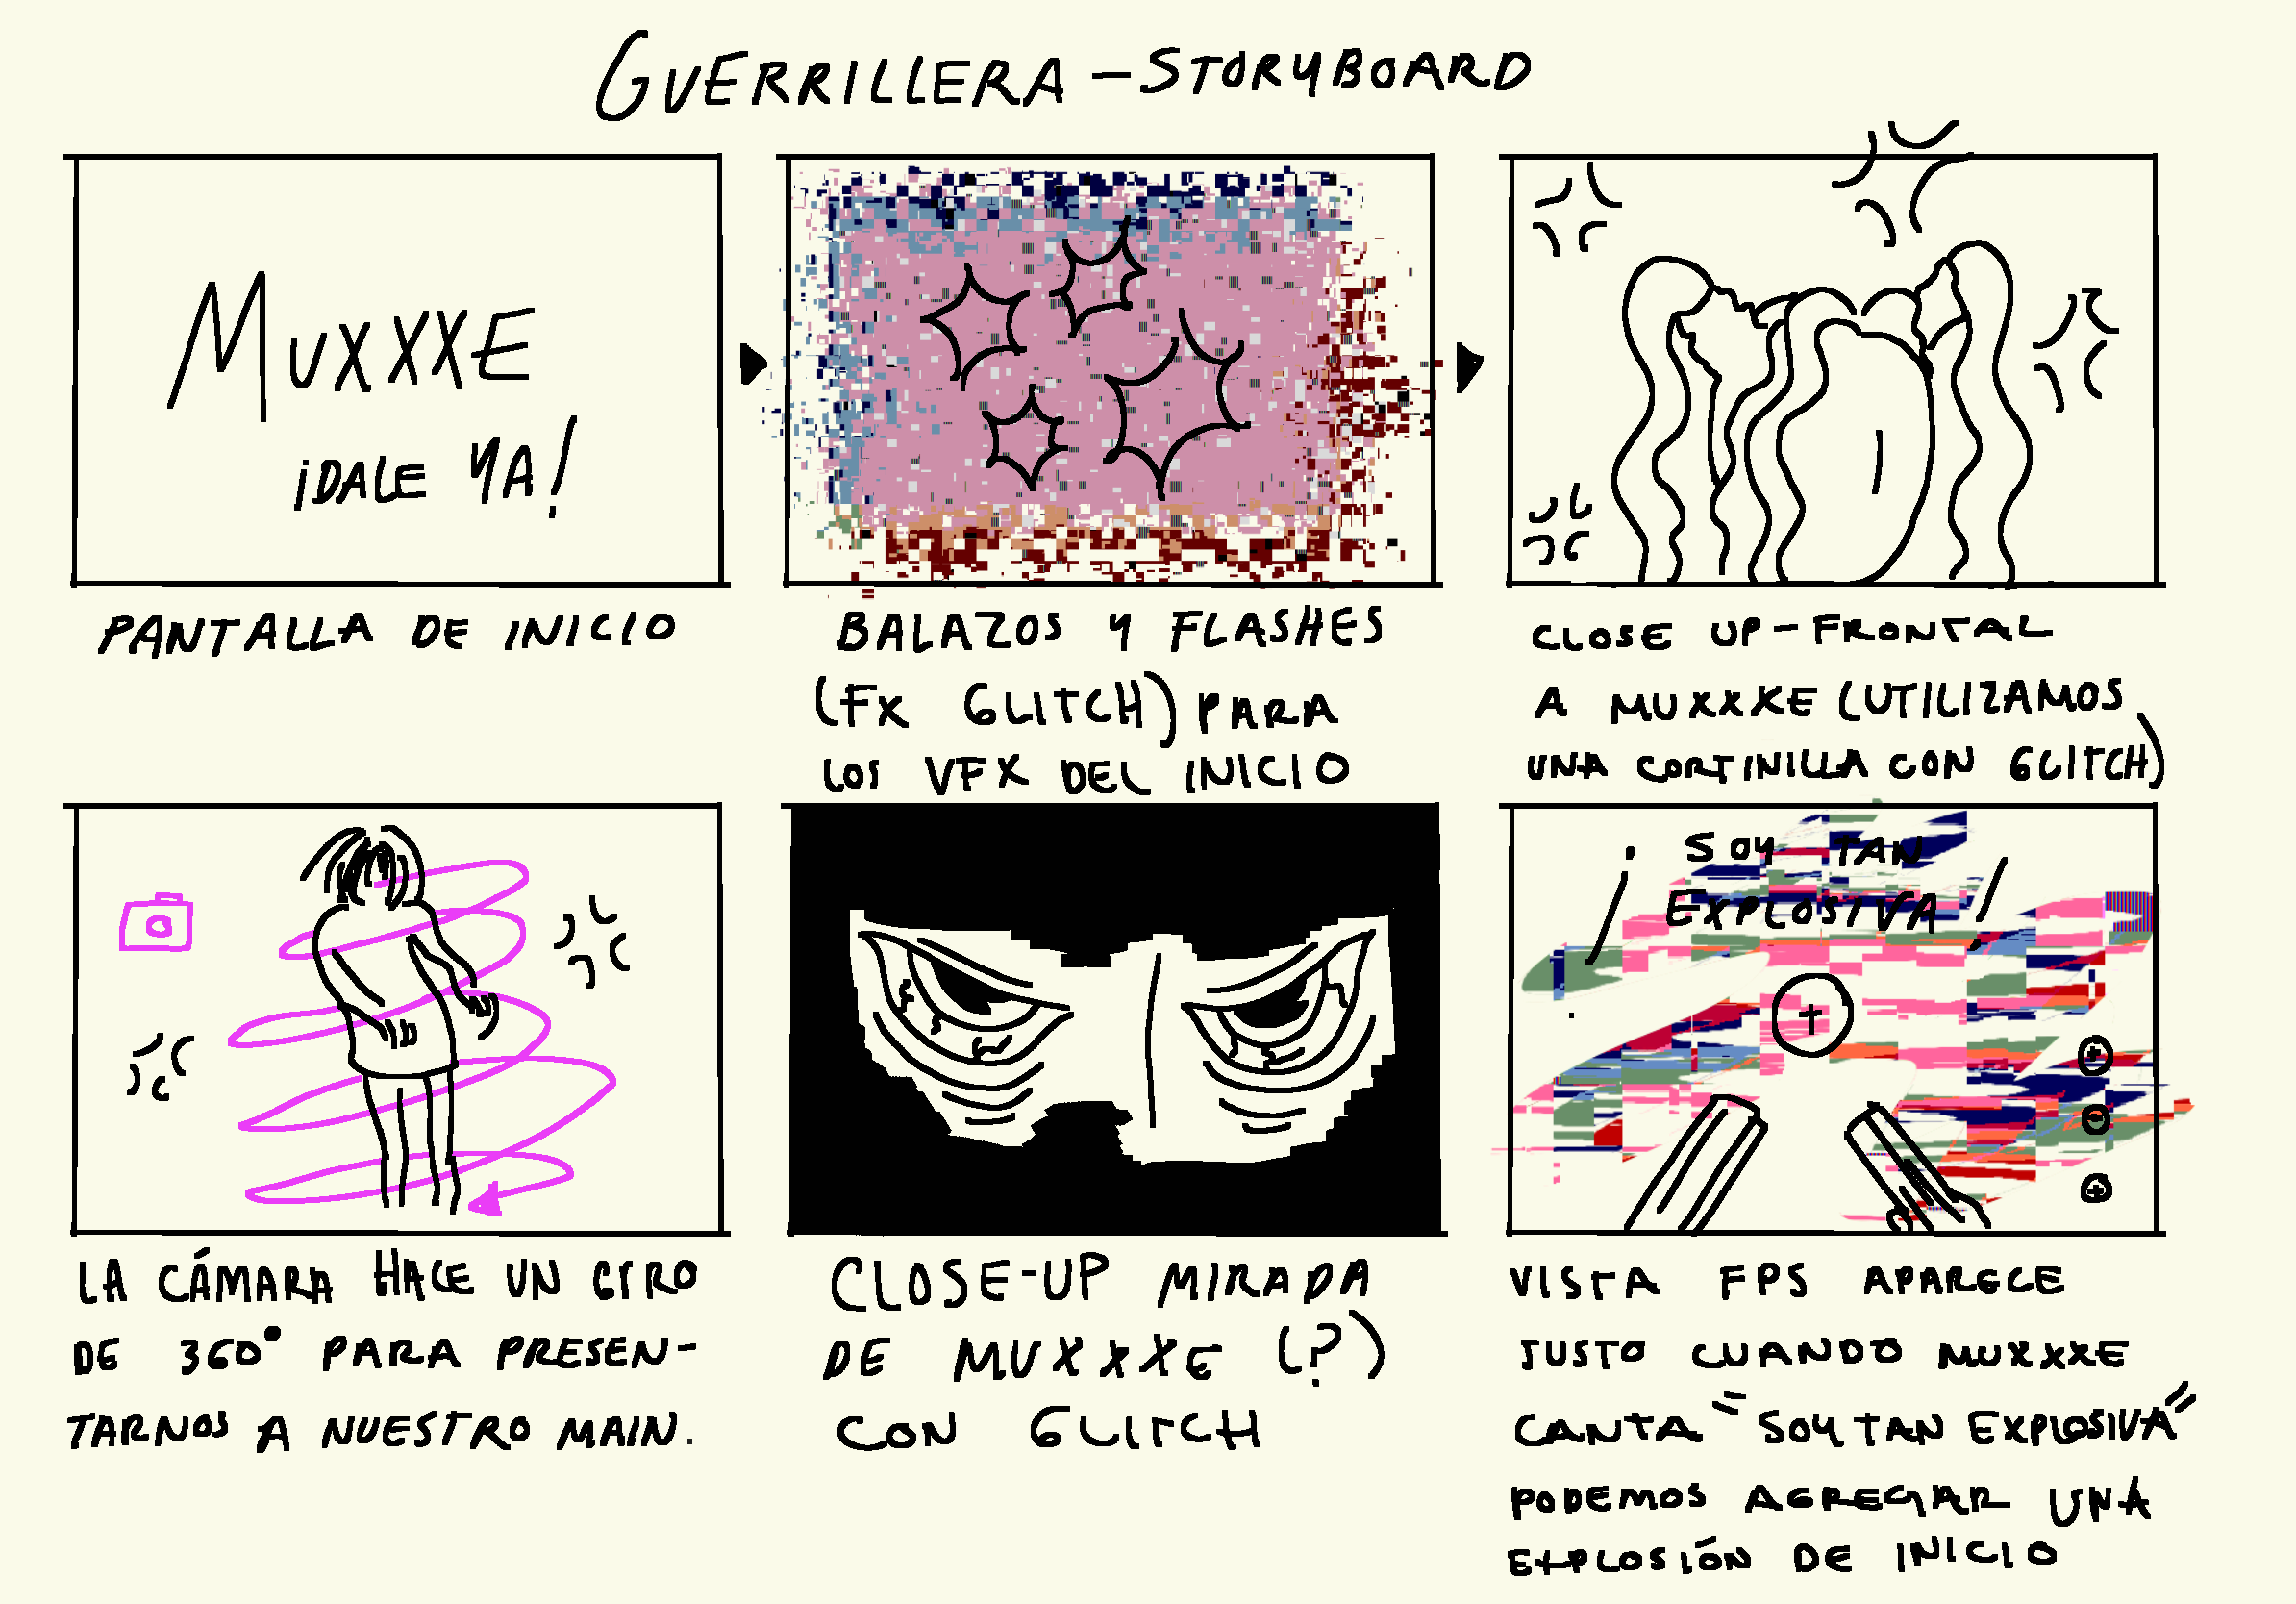 GUERRILLERA - STORYBOARD
MUXXXE
¡DALE YA!
PANTALLA DE INICIO
BALAZOS Y FLASHES
(FX GLITCH) PARA
LOS VFX DEL INICIO
CLOSE UP - FRONTAL
A MUXXXE (UTILIZAMOS
UNA CORTINILLA CON GLITCH)
LA CÁMARA HACE UN GIRO
DE 360° PARA PRESEN-
TARNOS A NUESTRO MAIN.
CLOSE-UP MIRADA
DE MUXXXE (?)
CON GLITCH
¡SOY TAN
EXPLOSIVA!
VISTA FPS APARECE
JUSTO CUANDO MUXXXE
CANTA "SOY TAN EXPLOSIVA"
PODEMOS AGREGAR UNA
EXPLOSIÓN DE INICIO